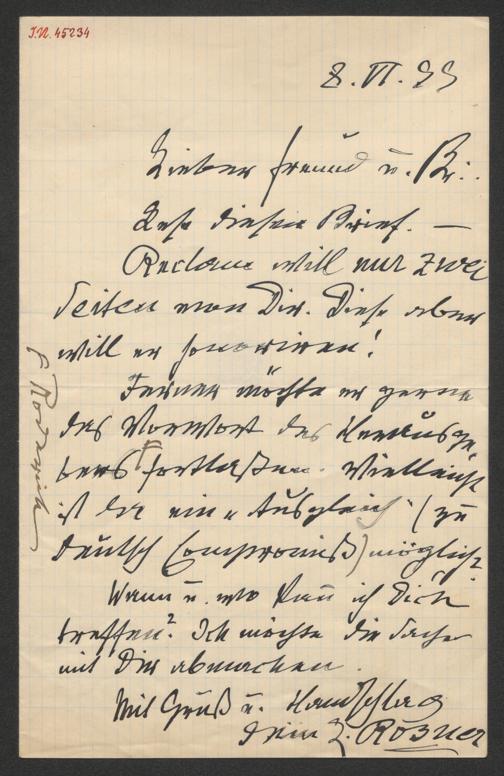 I.N. 45234
8. VI. 99
Lieber Freund u. Br:.
Lese diesen Brief. —
Reclam will nur zwei
Seiten von Dir. Diese aber
will er honoriren!
Ferner möchte er gerne
das Vorwort des Herausge
bers fortlassen. Vielleicht
ist da ein „Ausgleich" (zu
deutsch Compromiß) möglich?
Wann u. wo kann ich Dich
treffen? Ich möchte die Sache
mit Dir abmachen.
Mit Gruß u. Handschlag
Dein L. Rosner